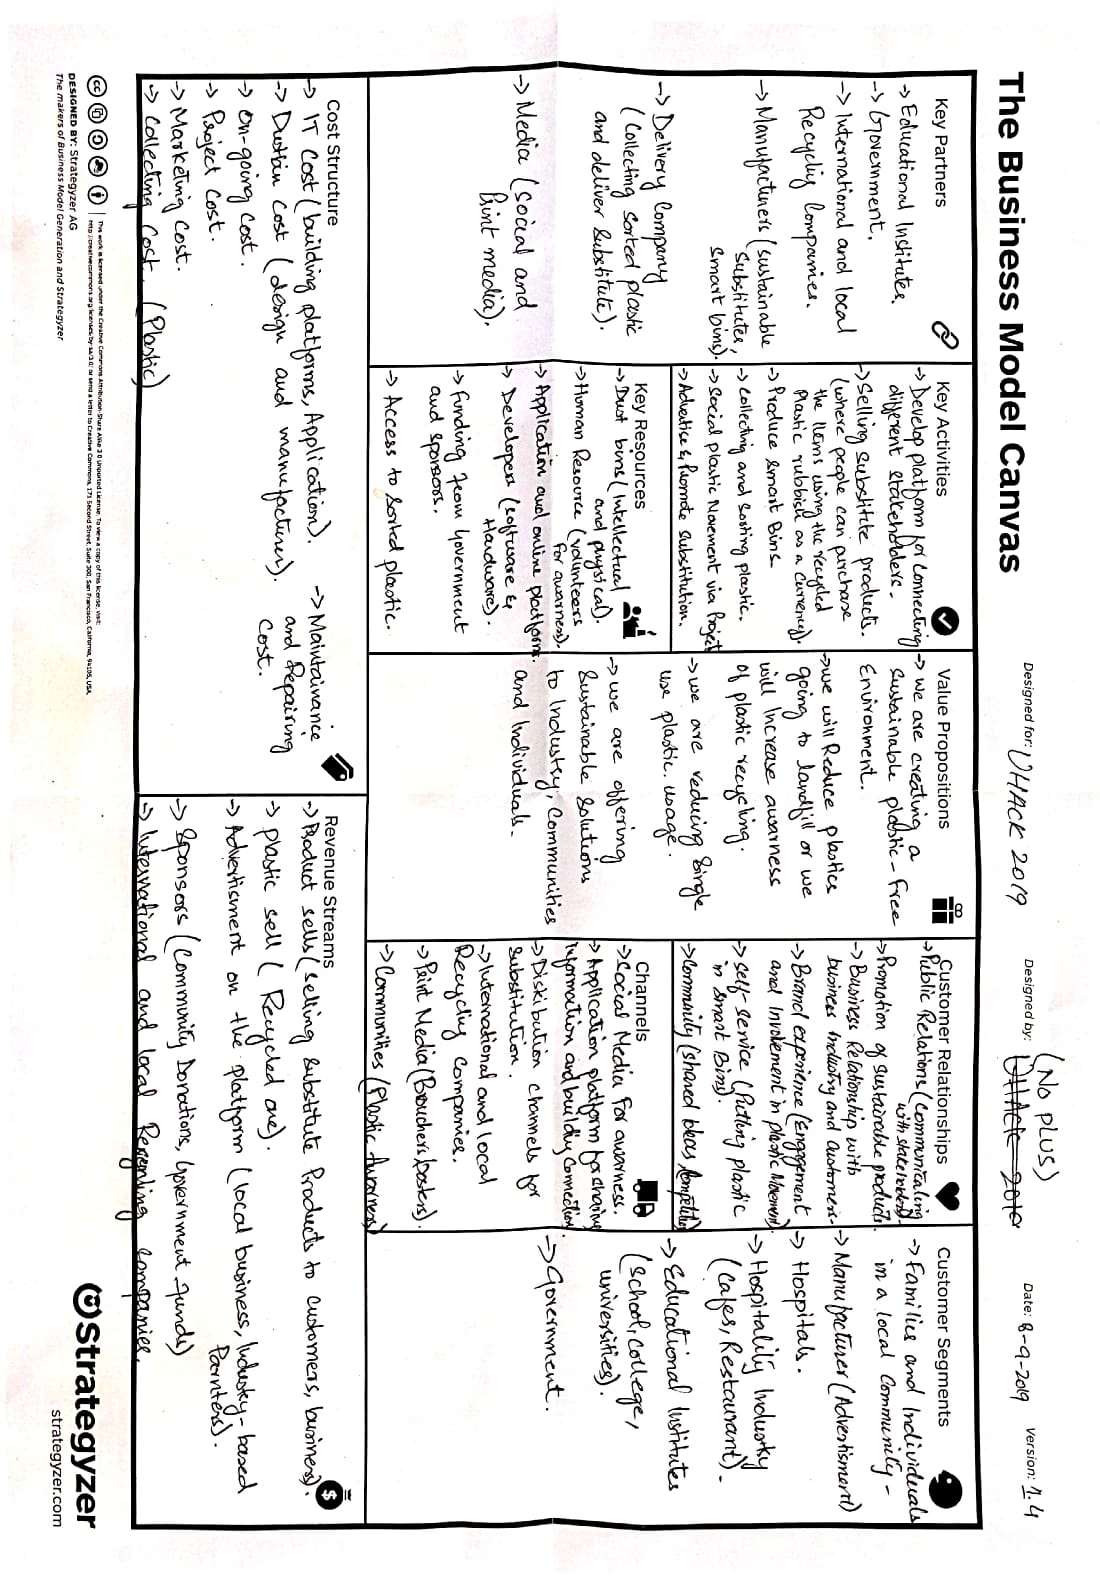 The Business Model Canvas
Designed for: UHACK 2019
Designed by: (No PLUS)
UHACK 2019
Date: 8-9-2019
Version: 1.4
Key Partners
→ Educational Institutes.
→ Government.
→ International and local
Recyclig Companies.
→ Manufacturers (sustainable
Substitutes,
smart bins).
→ Delivery Company
(collecting sorted plastic
and deliver substitute).
→ Media (social and
Print media).
Key Activities
→ Develop platform for connecting
different stakeholders.
→ Selling Substitute products.
(where people can purchase
the items using the recycled
Plastic rubbish as a currency).
→ Produce smart Bins.
→ collecting and sorting plastic.
→ Social plastic Movement via Project
→ Advertise & Promote substitution.
Key Resources
→ Dust bins (Intellectual
and physical).
→ Human Resource (volunteers
for awarness).
→ Application and online platform.
→ Developers (software &
Hardware).
→ Funding from Government
and sponsors.
→ Access to sorted plastic.
Value Propositions
→ we are creating a
sustainable plastic-free
Environment.
→ we will Reduce plastics
going to landfill or we
will Increase awarness
of plastic recycling.
→ we are reducing Single
use plastic usage.
→ we are offering
Sustainable Solutions
to Industry, Communities
and Individuals.
Customer Relationships
→ Public Relations (communicating
with stakeholders).
→ Promotion of sustainable products.
→ Business Relationship with
business Industry and customers.
→ Brand experience (Engagement
and Involvement in plastic Movement)
→ Self-service (Putting plastic
in smart Bins).
→ Community (shared Ideas, Competition)
Channels
→ Social Media for awarness.
→ Application platform for sharing
information and buildig connection.
→ Distribution channels for
substitution.
→ International and local
Recyclig companies.
→ Print Media (Brouchers, posters).
→ Communities (Plastic Awarness)
Customer Segments
→ Families and Individuals
in a local Community.
→ Manufacturer (Advertisment)
→ Hospitals.
→ Hospitality Industry
(Cafes, Restaurant).
→ Educational Institutes
(School, College,
universities).
→ Government.
Cost Structure
→ IT Cost (building platforms, Application).
→ Dustbin Cost (design and manufactures).
→ On-going Cost.
→ Project Cost.
→ Marketing Cost.
→ Collecting Cost. (Plastic)
→ Maintainance
and Repairing
Cost.
Revenue Streams
→ Product sells (selling substitute Products to customers, business).
→ plastic sell (Recycled one).
→ Advertisment on the platform (local business, Industry-based
Parnters).
→ Sponsors (Community Donations, Government funds)
→ International and local Recycling companies.
This work is licensed under the Creative Commons Attribution-Share Alike 3.0 Unported License. To view a copy of this license, visit:
http://creativecommons.org/licenses/by-sa/3.0/ or send a letter to Creative Commons, 171 Second Street, Suite 300, San Francisco, California, 94105, USA.
DESIGNED BY: Strategyzer AG
The makers of Business Model Generation and Strategyzer
Strategyzer
strategyzer.com